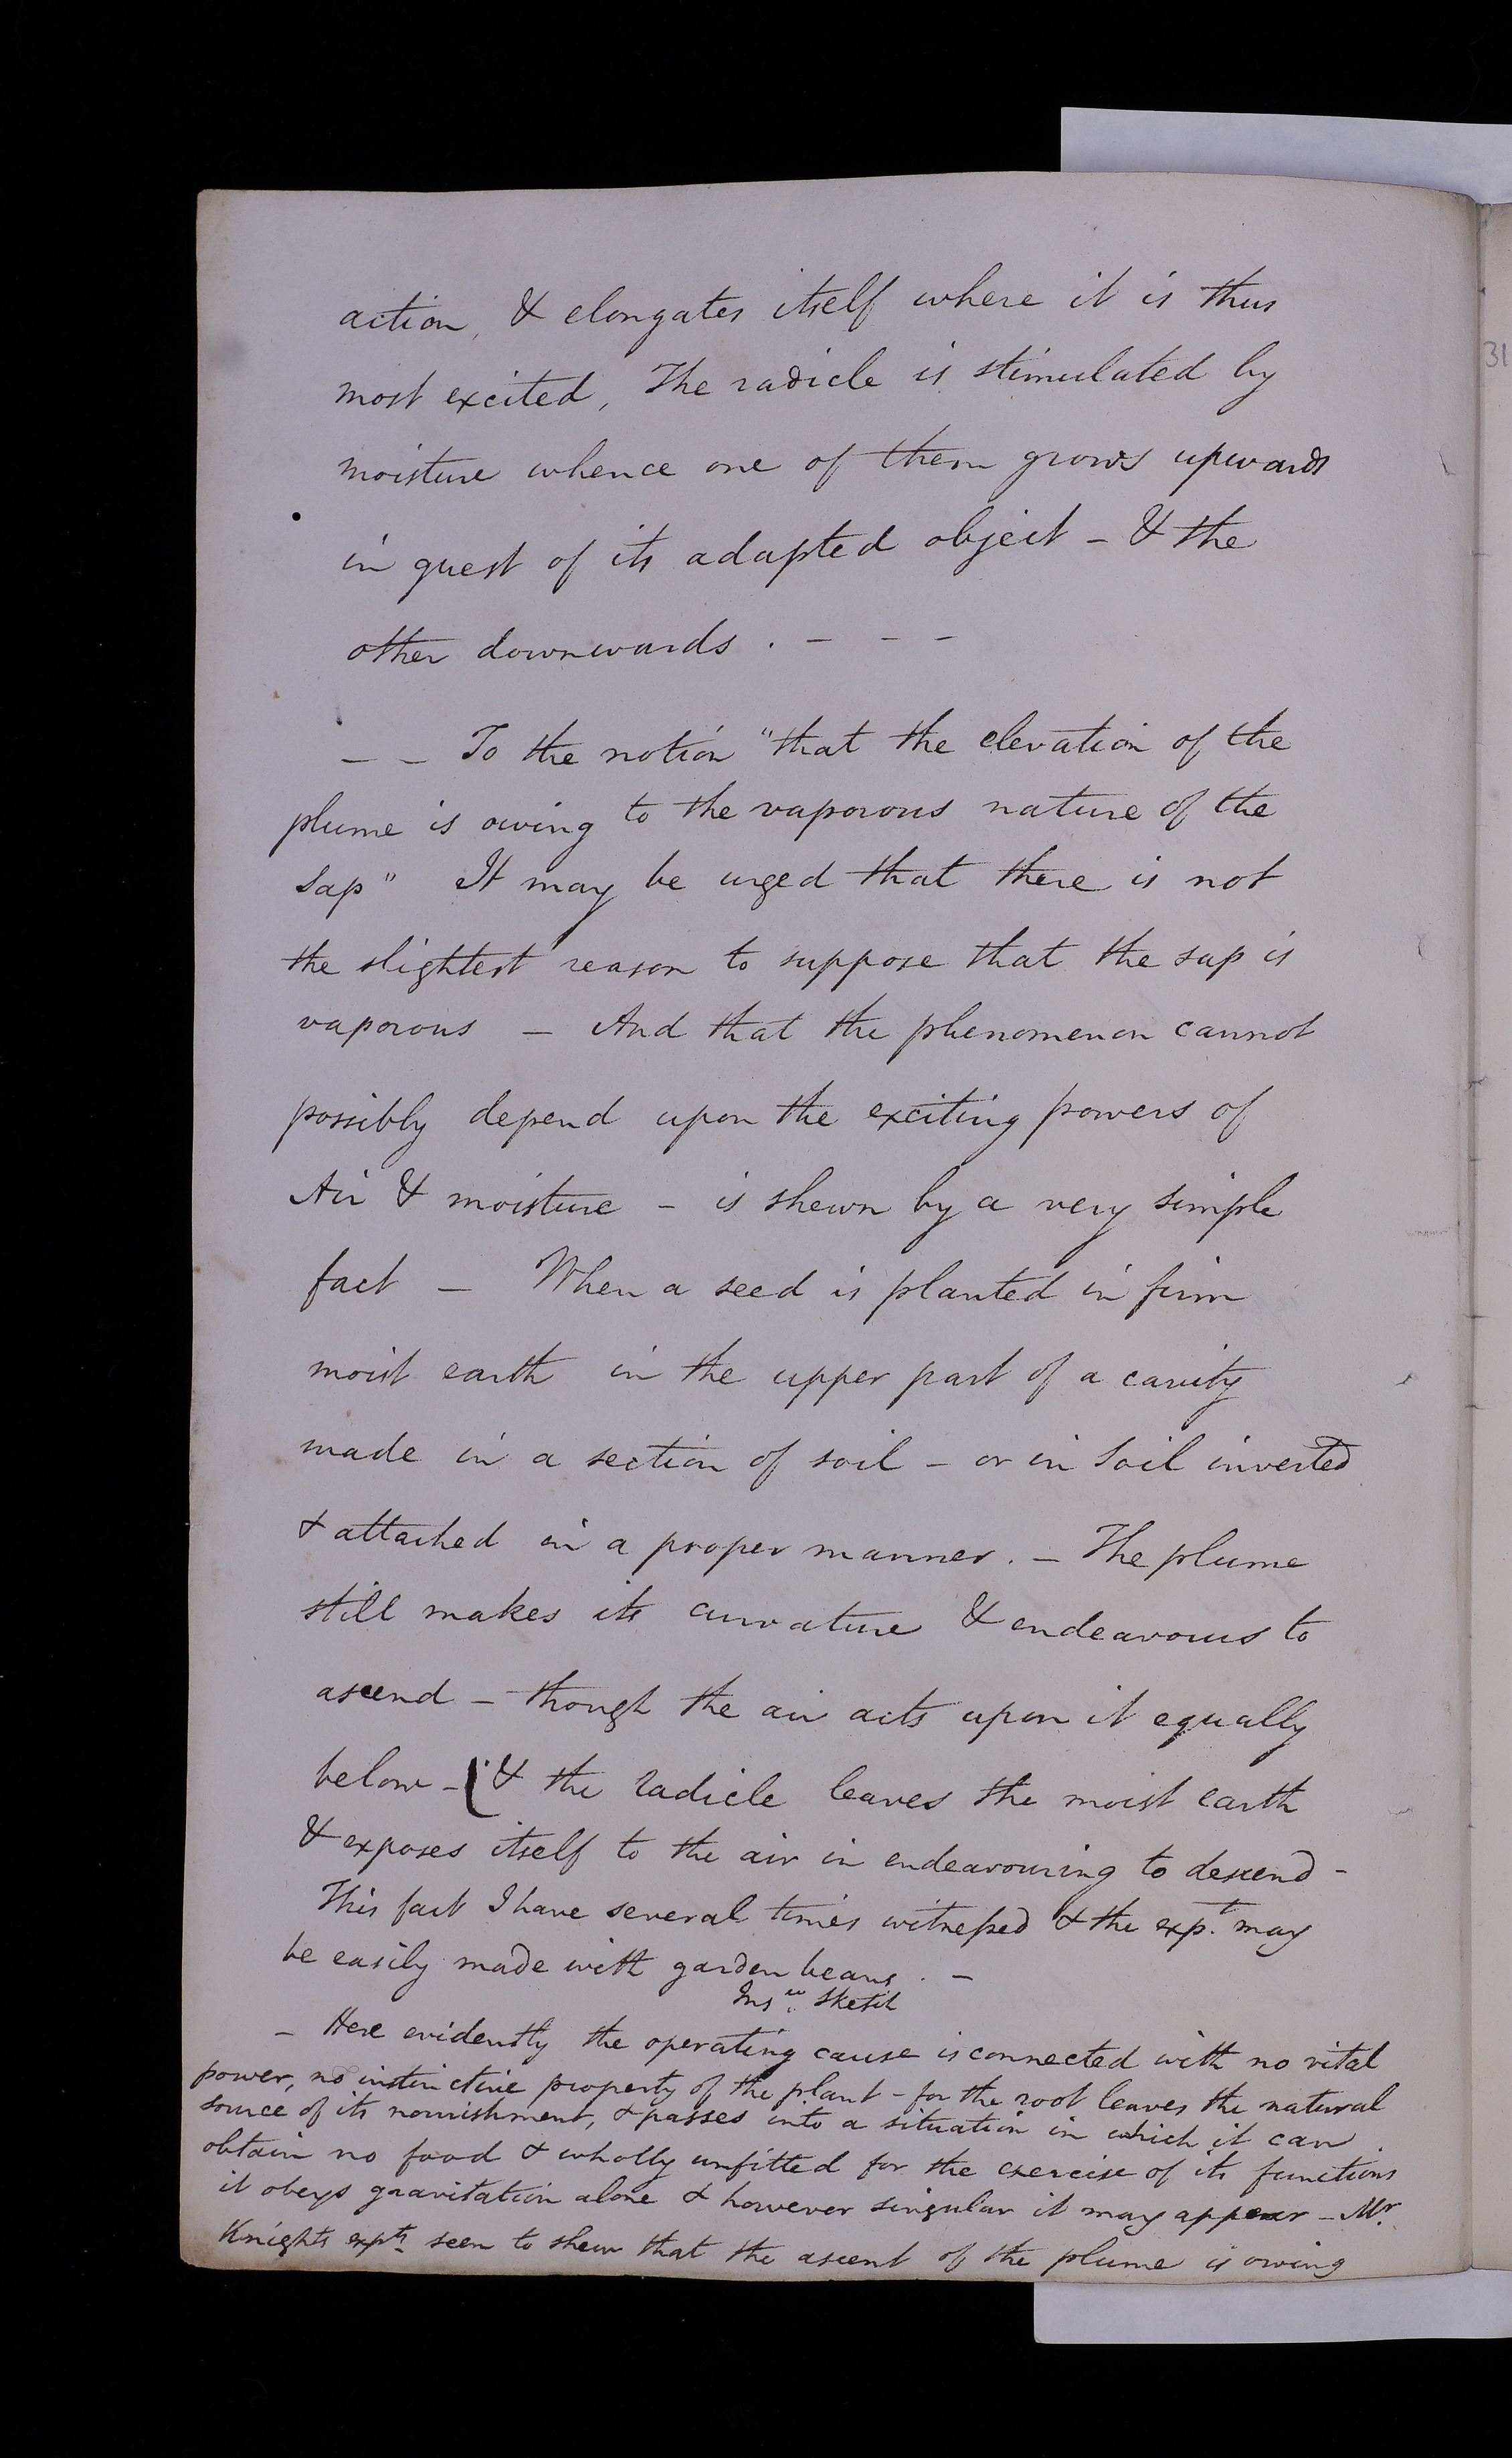 action, & elongates itself where it is thus
most excited, The radicle is stimulated by
moisture whence one of them grows upwards
in quest of its adapted object - & the
other downwards . - - -
- - To the notion "that the elevation of the
plume is owing to the vaporous nature of the
Sap" It may be urged that there is not
the slightest reason to suppose that the sap is
vaporous - And that the phenomenon cannot
possibly depend upon the exciting powers of
Air & moisture - is shewn by a very simple
fact - When a seed is planted in firm
moist earth in the upper part of a cavity
made in a section of soil - or in Soil inverted
& attached in a proper manner. - The plume
still makes its curvature & endeavours to
ascend - though the air acts upon it equally
below - (& the radicle leaves the moist earth
& exposes itself to the air in endeavouring to descend -
This fact I have several times witnessed & the expt. may
be easily made with garden beans . -
Sketch
- Here evidently the operating cause is connected with no vital
power, no instinctive property of the plant - for the root leaves the natural
source of its nourishment, & passes into a situation in which it can
obtain no food & wholly unfitted for the exercise of its functions
it obeys gravitation alone & however singular it may appear - Mr.
Knights expts. seem to shew that the ascent of the plume is owing
31